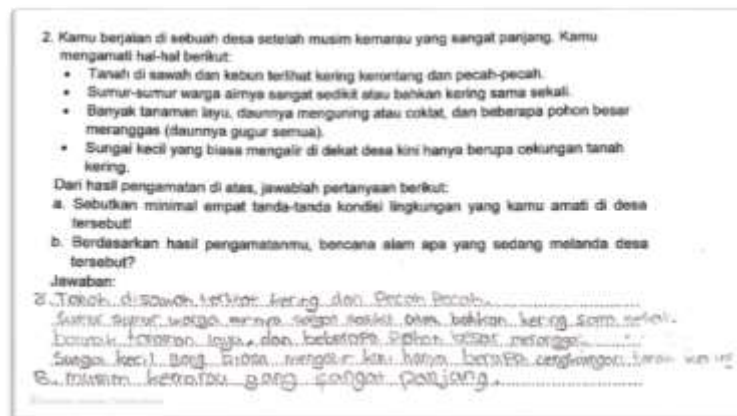 2. Kamu berjalan di sebuah desa setelah musim kemarau yang sangat panjang. Kamu
mengamati hal-hal berikut:
• Tanah di sawah dan kebun terlihat kering kerontang dan pecah-pecah.
• Sumur-sumur warga airnya sangat sedikit atau bahkan kering sama sekali.
• Banyak tanaman layu, daunnya menguning atau coklat, dan beberapa pohon besar
meranggas (daunnya gugur semua).
• Sungai kecil yang biasa mengalir di dekat desa kini hanya berupa cekungan tanah
kering.
Dari hasil pengamatan di atas, jawablah pertanyaan berikut:
a. Sebutkan minimal empat tanda-tanda kondisi lingkungan yang kamu amati di desa
tersebut!
b. Berdasarkan hasil pengamatanmu, bencana alam apa yang sedang melanda desa
tersebut?
Jawaban:
a. Tanah disawah terlihat kering dan Pecah Pecah.
Sumur sumur warga airnya sangat sedikit atau bahkan kering sama sekali.
banyak tanaman layu, dan beberapa Pohon besar meranggas
Sungai kecil yang biasa mengalir kini hanya berupa tanah kering
B. musim kemarau yang sangat Panjang.